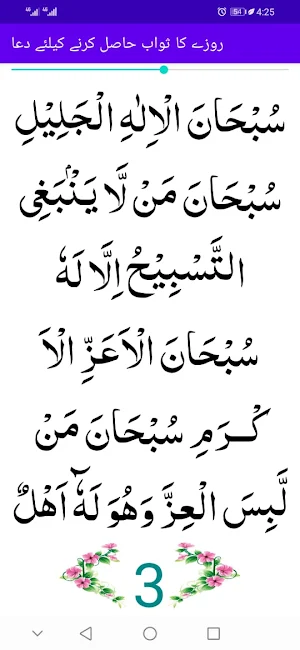 4:25
54
روزے کا ثواب حاصل کرنے کیلئے دعا
سُبْحَانَ الْاِلٰهِ الْجَلِيْلِ
سُبْحَانَ مَنْ لَّا يَنْۢبَغِى
التَّسْبِيْحُ اِلَّا لَهٗ
سُبْحَانَ الْاَعَزِّ الْاَ
كْـرَمِ سُبْحَانَ مَنْ
لَّبِسَ الْعِزَّ وَهُوَ لَهٗٓ اَهْلٌ
3